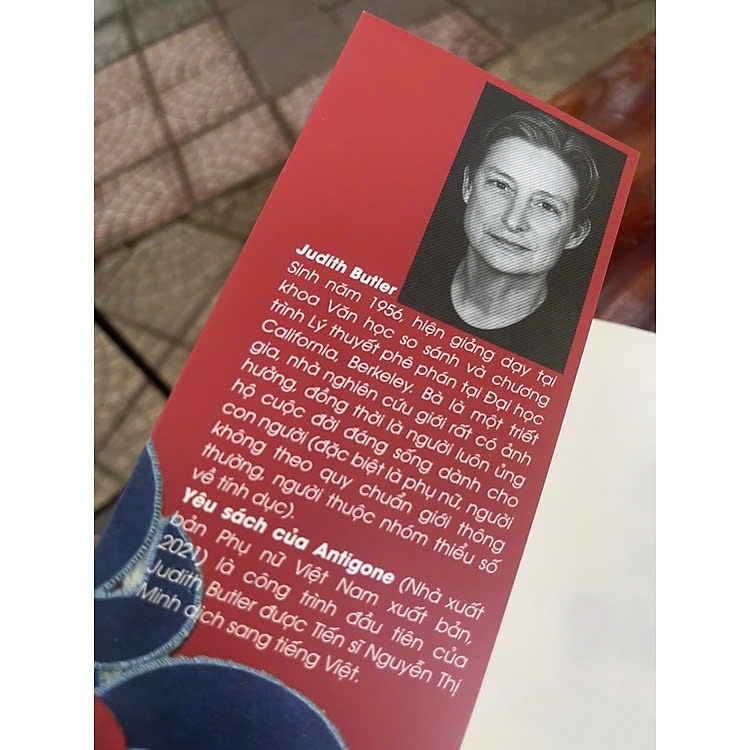 Judith Butler
Sinh năm 1956, hiện giảng dạy tại
khoa Văn học so sánh và chương
trình Lý thuyết phê phán tại Đại học
California, Berkeley. Bà là một triết
gia, nhà nghiên cứu giới rất có ảnh
hưởng, đồng thời là người luôn ủng
hộ cuộc đời đáng sống dành cho
con người (đặc biệt là phụ nữ, người
không theo quy chuẩn giới thông
thường, người thuộc nhóm thiểu số
về tính dục).
Yêu sách của Antigone (Nhà xuất
bản Phụ nữ Việt Nam xuất bản,
2021) là công trình đầu tiên của
Judith Butler được Tiến sĩ Nguyễn Thị
Minh dịch sang tiếng Việt.